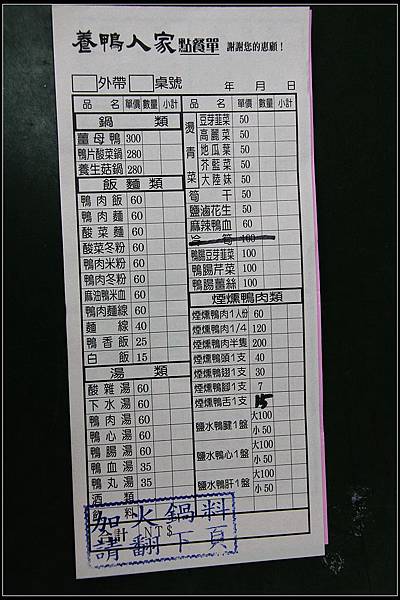 養鴨人家點餐單 謝謝您的惠顧！
外帶 桌號 年 月 日
品名 單價 數量 小計
鍋類
薑母鴨 300
鴨片酸菜鍋 280
養生菇鍋 280
飯麵類
鴨肉飯 60
鴨肉麵 60
酸菜麵 60
酸菜冬粉 60
鴨肉米粉 60
鴨肉冬粉 60
麻油鴨米血 60
鴨肉麵線 60
麵線 40
鴨香飯 25
白飯 15
湯類
酸雜湯 60
下水湯 60
鴨肉湯 60
鴨心湯 60
鴨腸湯 60
鴨血湯 35
鴨丸湯 35
酒類
飲料
合計 NT$
品名 單價 數量 小計
燙青菜
豆芽韮菜 50
高麗菜 50
地瓜葉 50
芥藍菜 50
大陸妹 50
筍干 50
鹽滷花生 50
麻辣鴨血 60
冷筍 100
鴨腸豆芽韮菜 100
鴨腸芹菜 100
鴨腸薑絲 100
煙燻鴨肉類
煙燻鴨肉1人份 60
煙燻鴨肉1/4 120
煙燻鴨肉半隻 200
煙燻鴨頭1支 40
煙燻鴨翅1支 30
煙燻鴨腳1支 7
煙燻鴨舌1支 15
鹽水鴨腱1盤 大100 小50
鹽水鴨心1盤 大100 小50
鹽水鴨肝1盤 大100 小50
加火鍋料
請翻下頁